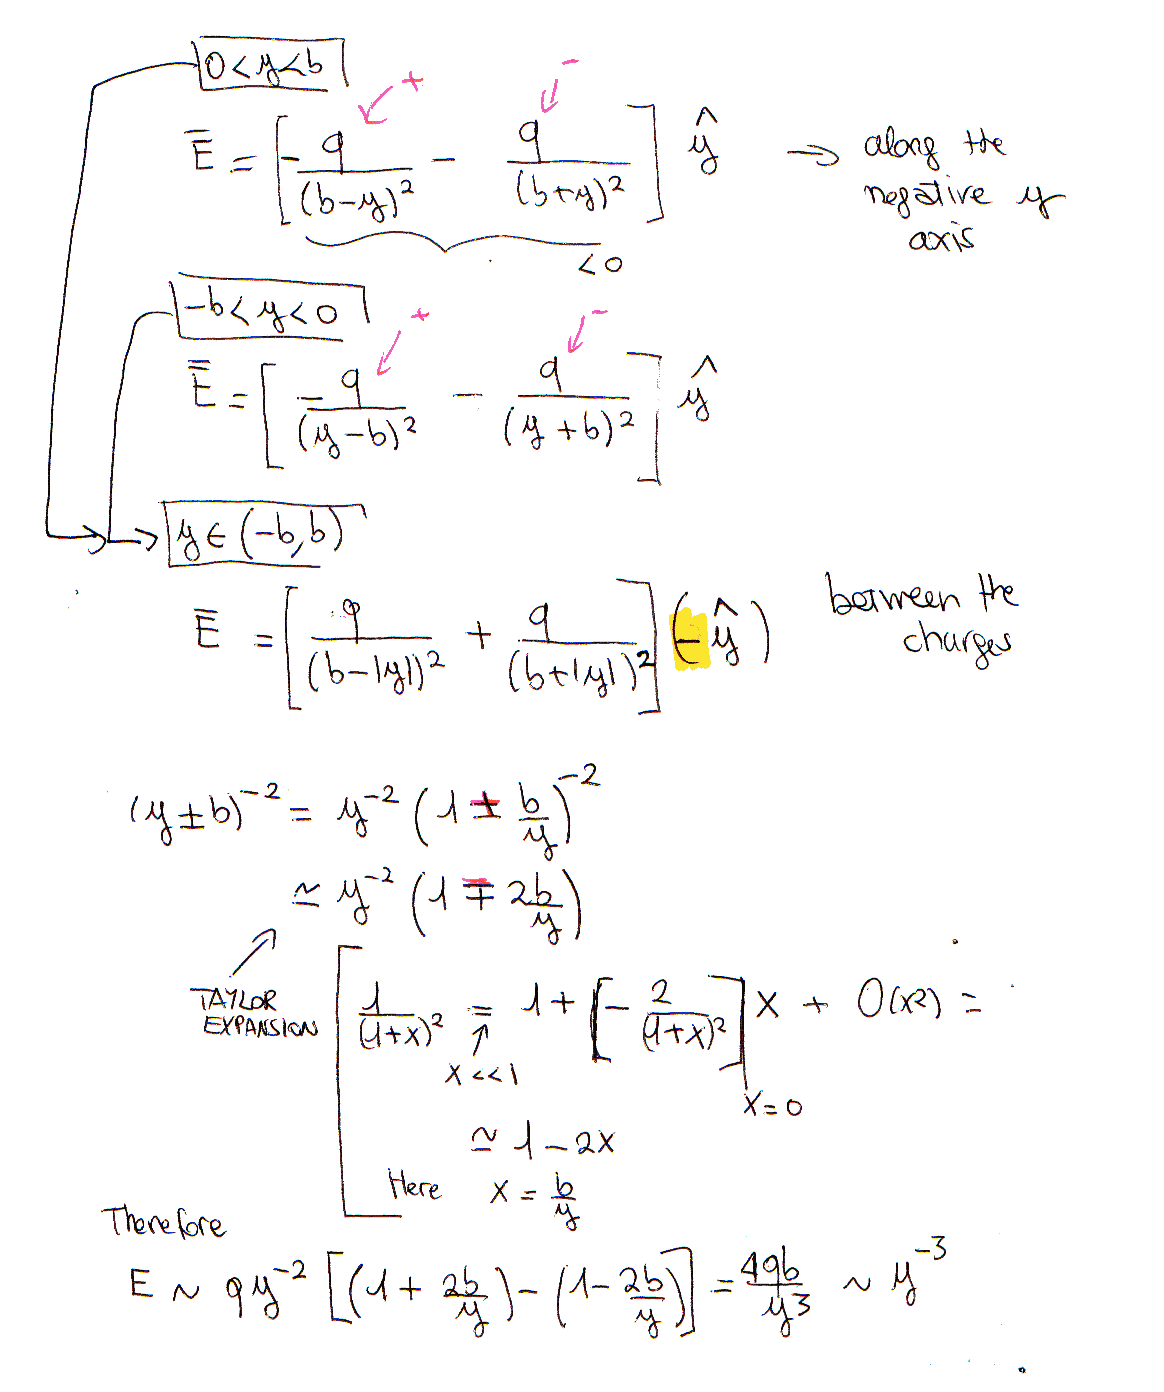 0 < y < b
+ -
E̅ = [ - q/(b-y)² - q/(b+y)² ] ŷ → along the negative y axis
< 0
-b < y < 0
+ -
E̅ = [ - q/(y-b)² - q/(y+b)² ] ŷ
y ∈ (-b, b)
E̅ = [ q/(b-|y|)² + q/(b+|y|)² ] (-ŷ) between the charges
(y ± b)⁻² = y⁻² (1 ± b/y)⁻²
≃ y⁻² (1 ∓ 2b/y)
TAYLOR EXPANSION
1/(1+x)² = 1 + [ - 2/(1+x)² ] x + O(x²) =
x << 1
x = 0
≃ 1 - 2x
Here x = b/y
Therefore
E ~ q y⁻² [ (1 + 2b/y) - (1 - 2b/y) ] = 4qb/y³ ~ y⁻³